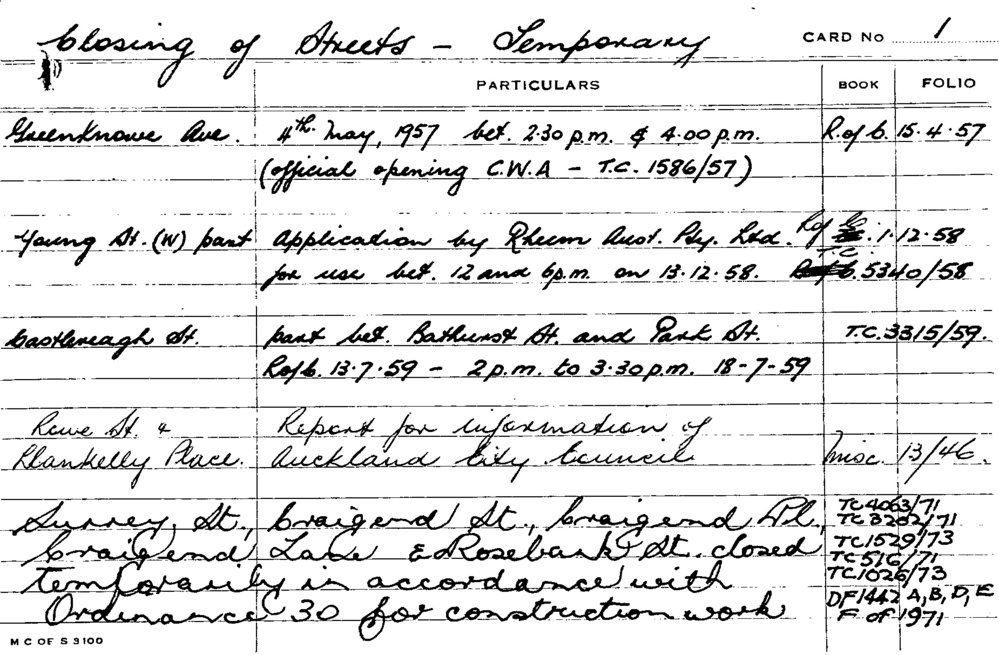 Closing of Streets – Temporary CARD No 1
PARTICULARS BOOK FOLIO
Greenknowe Ave. 4th. May, 1957 bet. 2.30 p.m. & 4.00 p.m. R. of C. 15.4.57
(official opening C.W.A – T.C. 1586/57)
Young St. (W) part Application by Rheem Aust. Pty. Ltd. R of C. 1.12.58
for use bet. 12 and 6 p.m. on 13.12.58. T.C. 5340/58
Castlereagh St. part bet. Bathurst St. and Park St. T.C. 3315/59.
R of C. 13.7.59 – 2 p.m. to 3.30 p.m. 18-7-59
Rowe St. & Report for information of
Llankelly Place. Auckland City Council Misc. 13/46.
Surrey, St., Craigend St., Craigend Pl., TC4063/71
TC3202/71
Craigend Lane & Rosebank St. closed TC1529/73
TC516/71
temporarily in accordance with TC1026/73
Ordinance 30 for construction work DF1442 A, B, D, E
F of 1971
M C OF S 3100